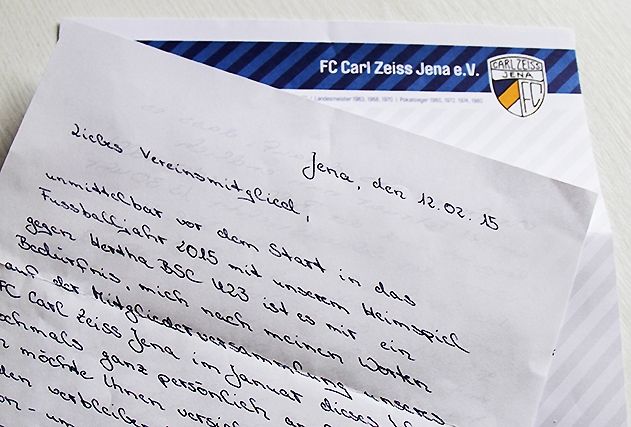 FC Carl Zeiss Jena e.V.
CARL ZEISS
JENA
FC
Landesmeister 1963, 1968, 1970 | Pokalsieger 1960, 1972, 1974, 1980
Jena, den 12.02.15
Liebes Vereinsmitglied,
unmittelbar vor dem Start in das
Fussballjahr 2015 mit unserem Heimspiel
gegen Hertha BSC U23 ist es mir ein
Bedürfnis, mich nach meinen Worten
auf der Mitgliederversammlung unseres
FC Carl Zeiss Jena im Januar dieses
ochmals ganz persönlich an
möchte Ihnen
den